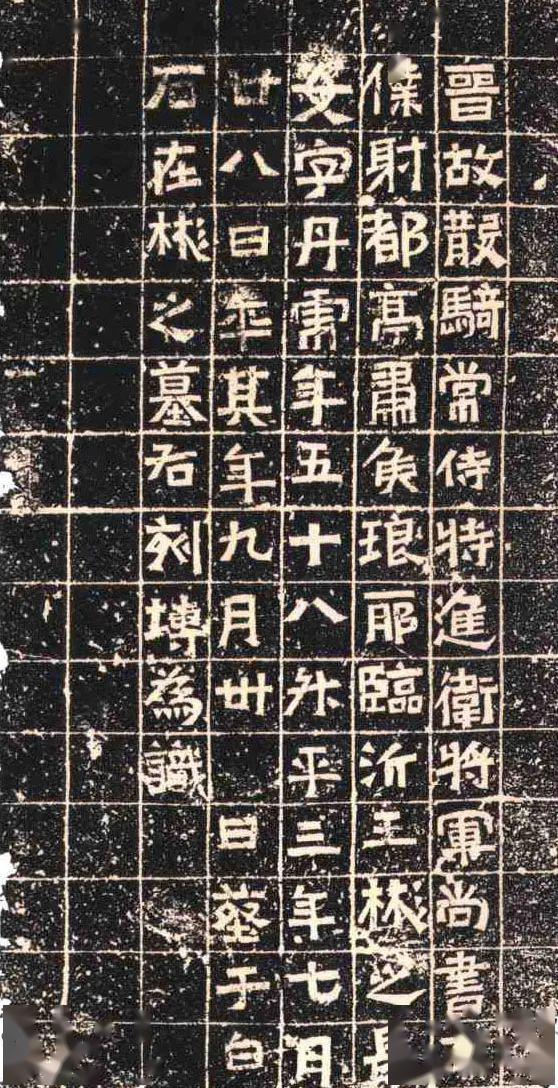 晉故散騎常侍特進衛將軍尚書
僕射都亭肅侯琅耶臨沂王彬之長
女字丹虎年五十八升平三年七月
廿八日卒其年九月卅 日葬于白
石在彬之墓右刻塼為識